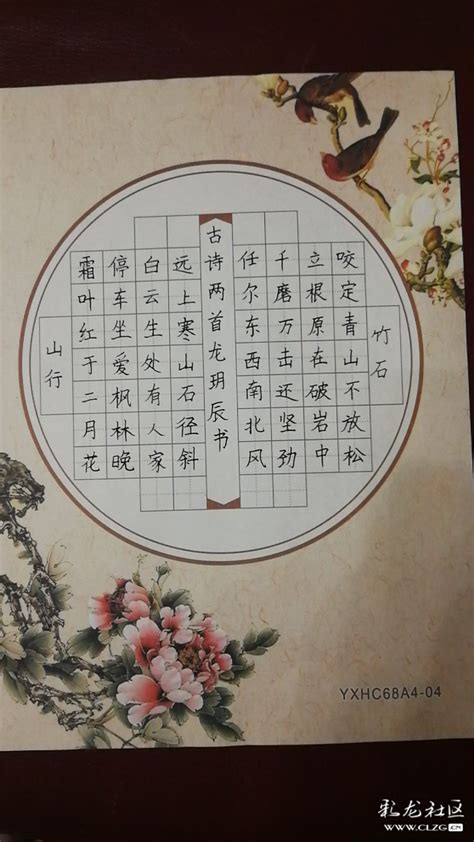 竹石
咬定青山不放松
立根原在破岩中
千磨万击还坚劲
任尔东西南北风
古诗两首龙玥辰书
远上寒山石径斜
白云生处有人家
停车坐爱枫林晚
霜叶红于二月花
山行
YXHC68A4-04
彩龙社区
WWW.CLZG.CN